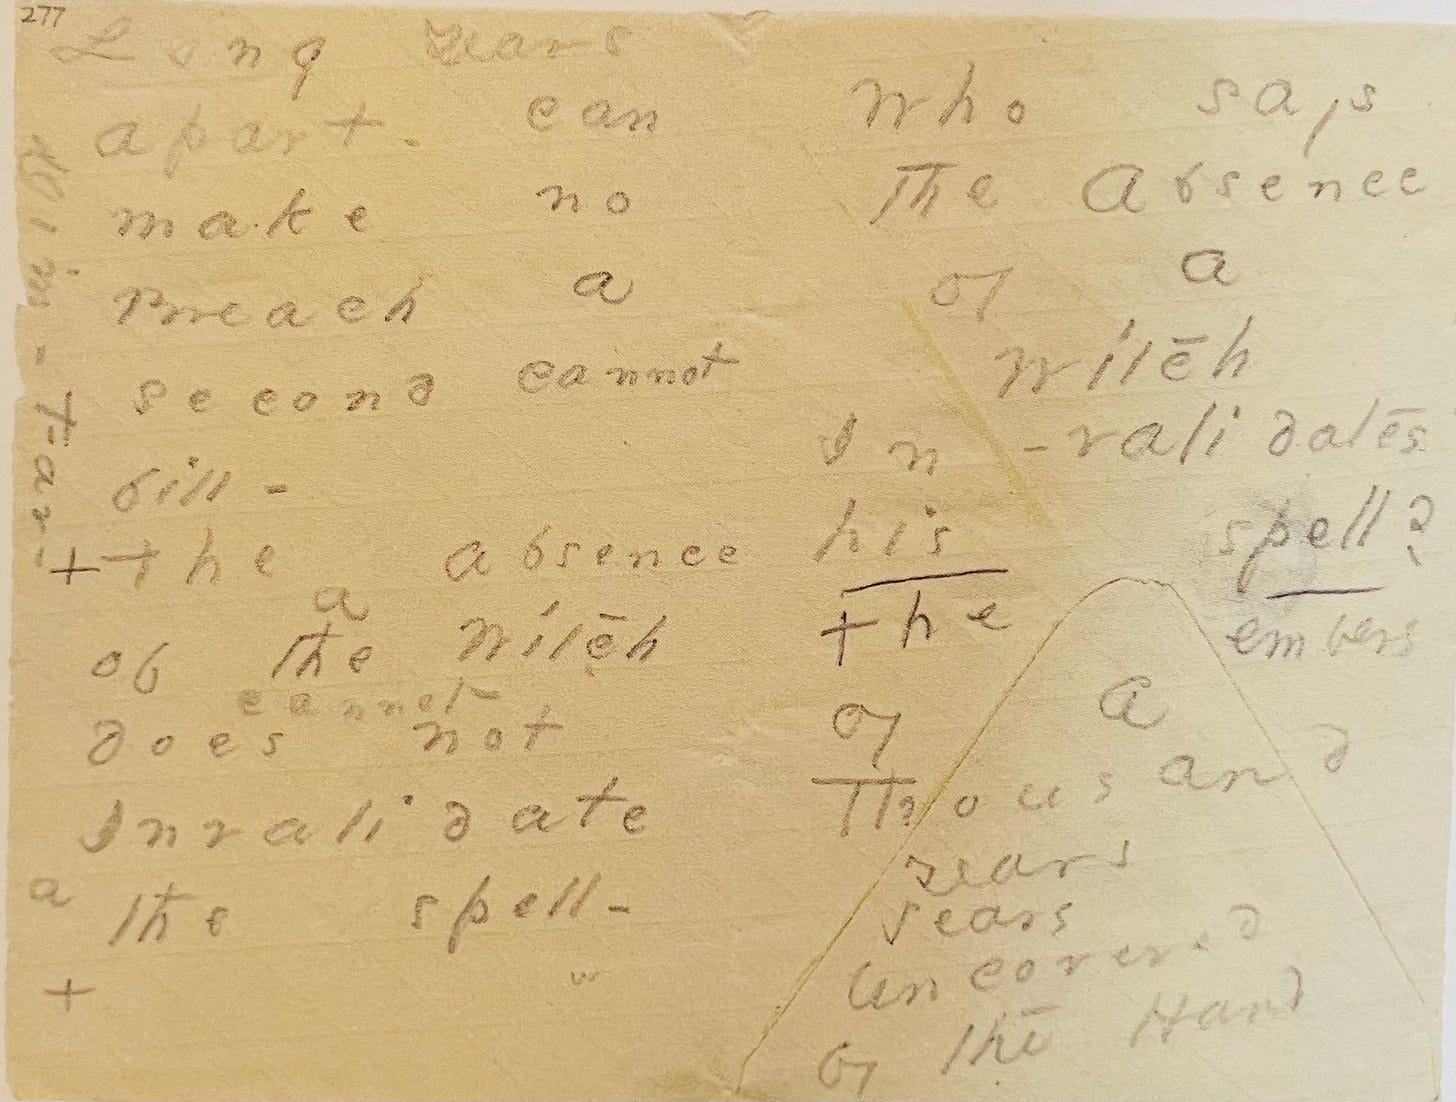 277
Long years
apart - can
make no
Breach a
second cannot
fill -
+ the absence
a
of the Witch
cannot
does not
Invalidate
a the spell -
+
Who says
The Absence
of a
Witch
In - validates
his spell?
the embers
of a
Thousand
years
years
uncovered
by the Hand